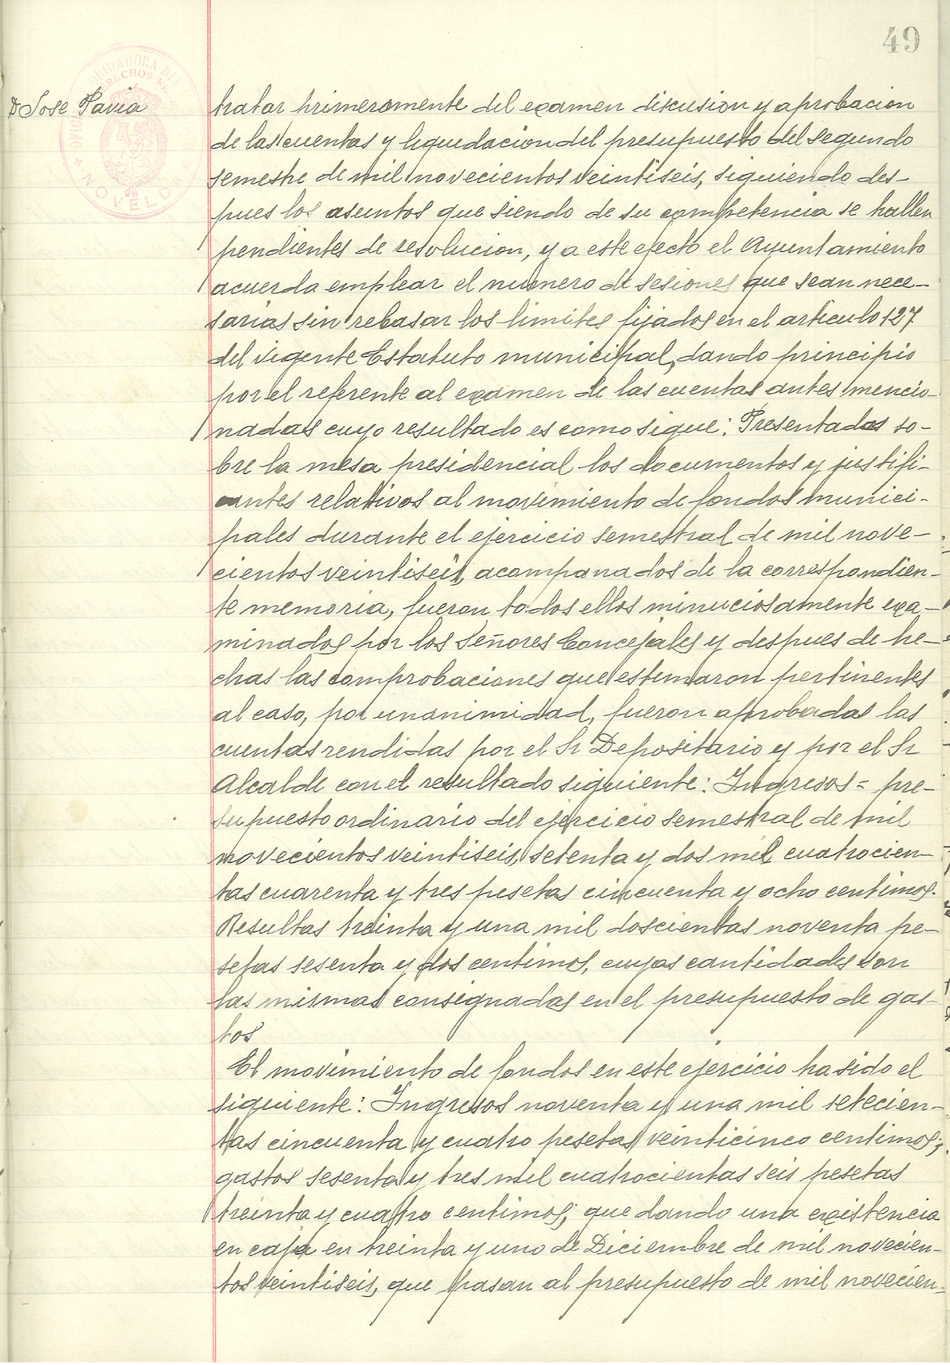 49
D Jose Pavia
tratar primeramente del examen discusion y aprobacion
de las cuentas y liquidacion del presupuesto del segundo
semestre de mil novecientos veintiseis, siguiendo des-
pues los asuntos que siendo de su competencia se hallen
pendientes de resolucion, y a este efecto el Ayuntamiento
acuerda emplear el numero de sesiones que sean nece-
sarias sin rebasar los limites fijados en el articulo 127
del vigente Estatuto municipal, dando principio
por el referente al examen de las cuentas antes mencio-
nadas cuyo resultado es como sigue: Presentadas so-
bre la mesa presidencial los documentos y justifi-
cantes relativos al movimiento de fondos munici-
pales durante el ejercicio semestral de mil nove-
cientos veintiseis, acompanados de la correspondien-
te memoria, fueron todos ellos minuciosamente exa-
minados por los Señores Concejales y despues de he-
chas las comprobaciones que estimaron pertinentes
al caso, por unanimidad, fueron aprobadas las
cuentas rendidas por el Sr Depositario y por el Sr
Alcalde con el resultado siguiente: Ingresos = pre-
supuesto ordinario del ejercicio semestral de mil
novecientos veintiseis, setenta y dos mil cuatrocien-
tas cuarenta y tres pesetas cincuenta y ocho centimos.
Resultas treinta y una mil doscientas noventa pe-
setas sesenta y dos centimos, cuyas cantidades son
las mismas consignadas en el presupuesto de gas-
tos
El movimiento de fondos en este ejercicio ha sido el
siguiente: Ingresos noventa y una mil setecien-
tas cincuenta y cuatro pesetas veinticinco centimos;
gastos sesenta y tres mil cuatrocientas seis pesetas
treinta y cuatro centimos; que dando una existencia
en caja en treinta y uno de Diciembre de mil novecien-
tos veintiseis, que pasan al presupuesto de mil novecien-